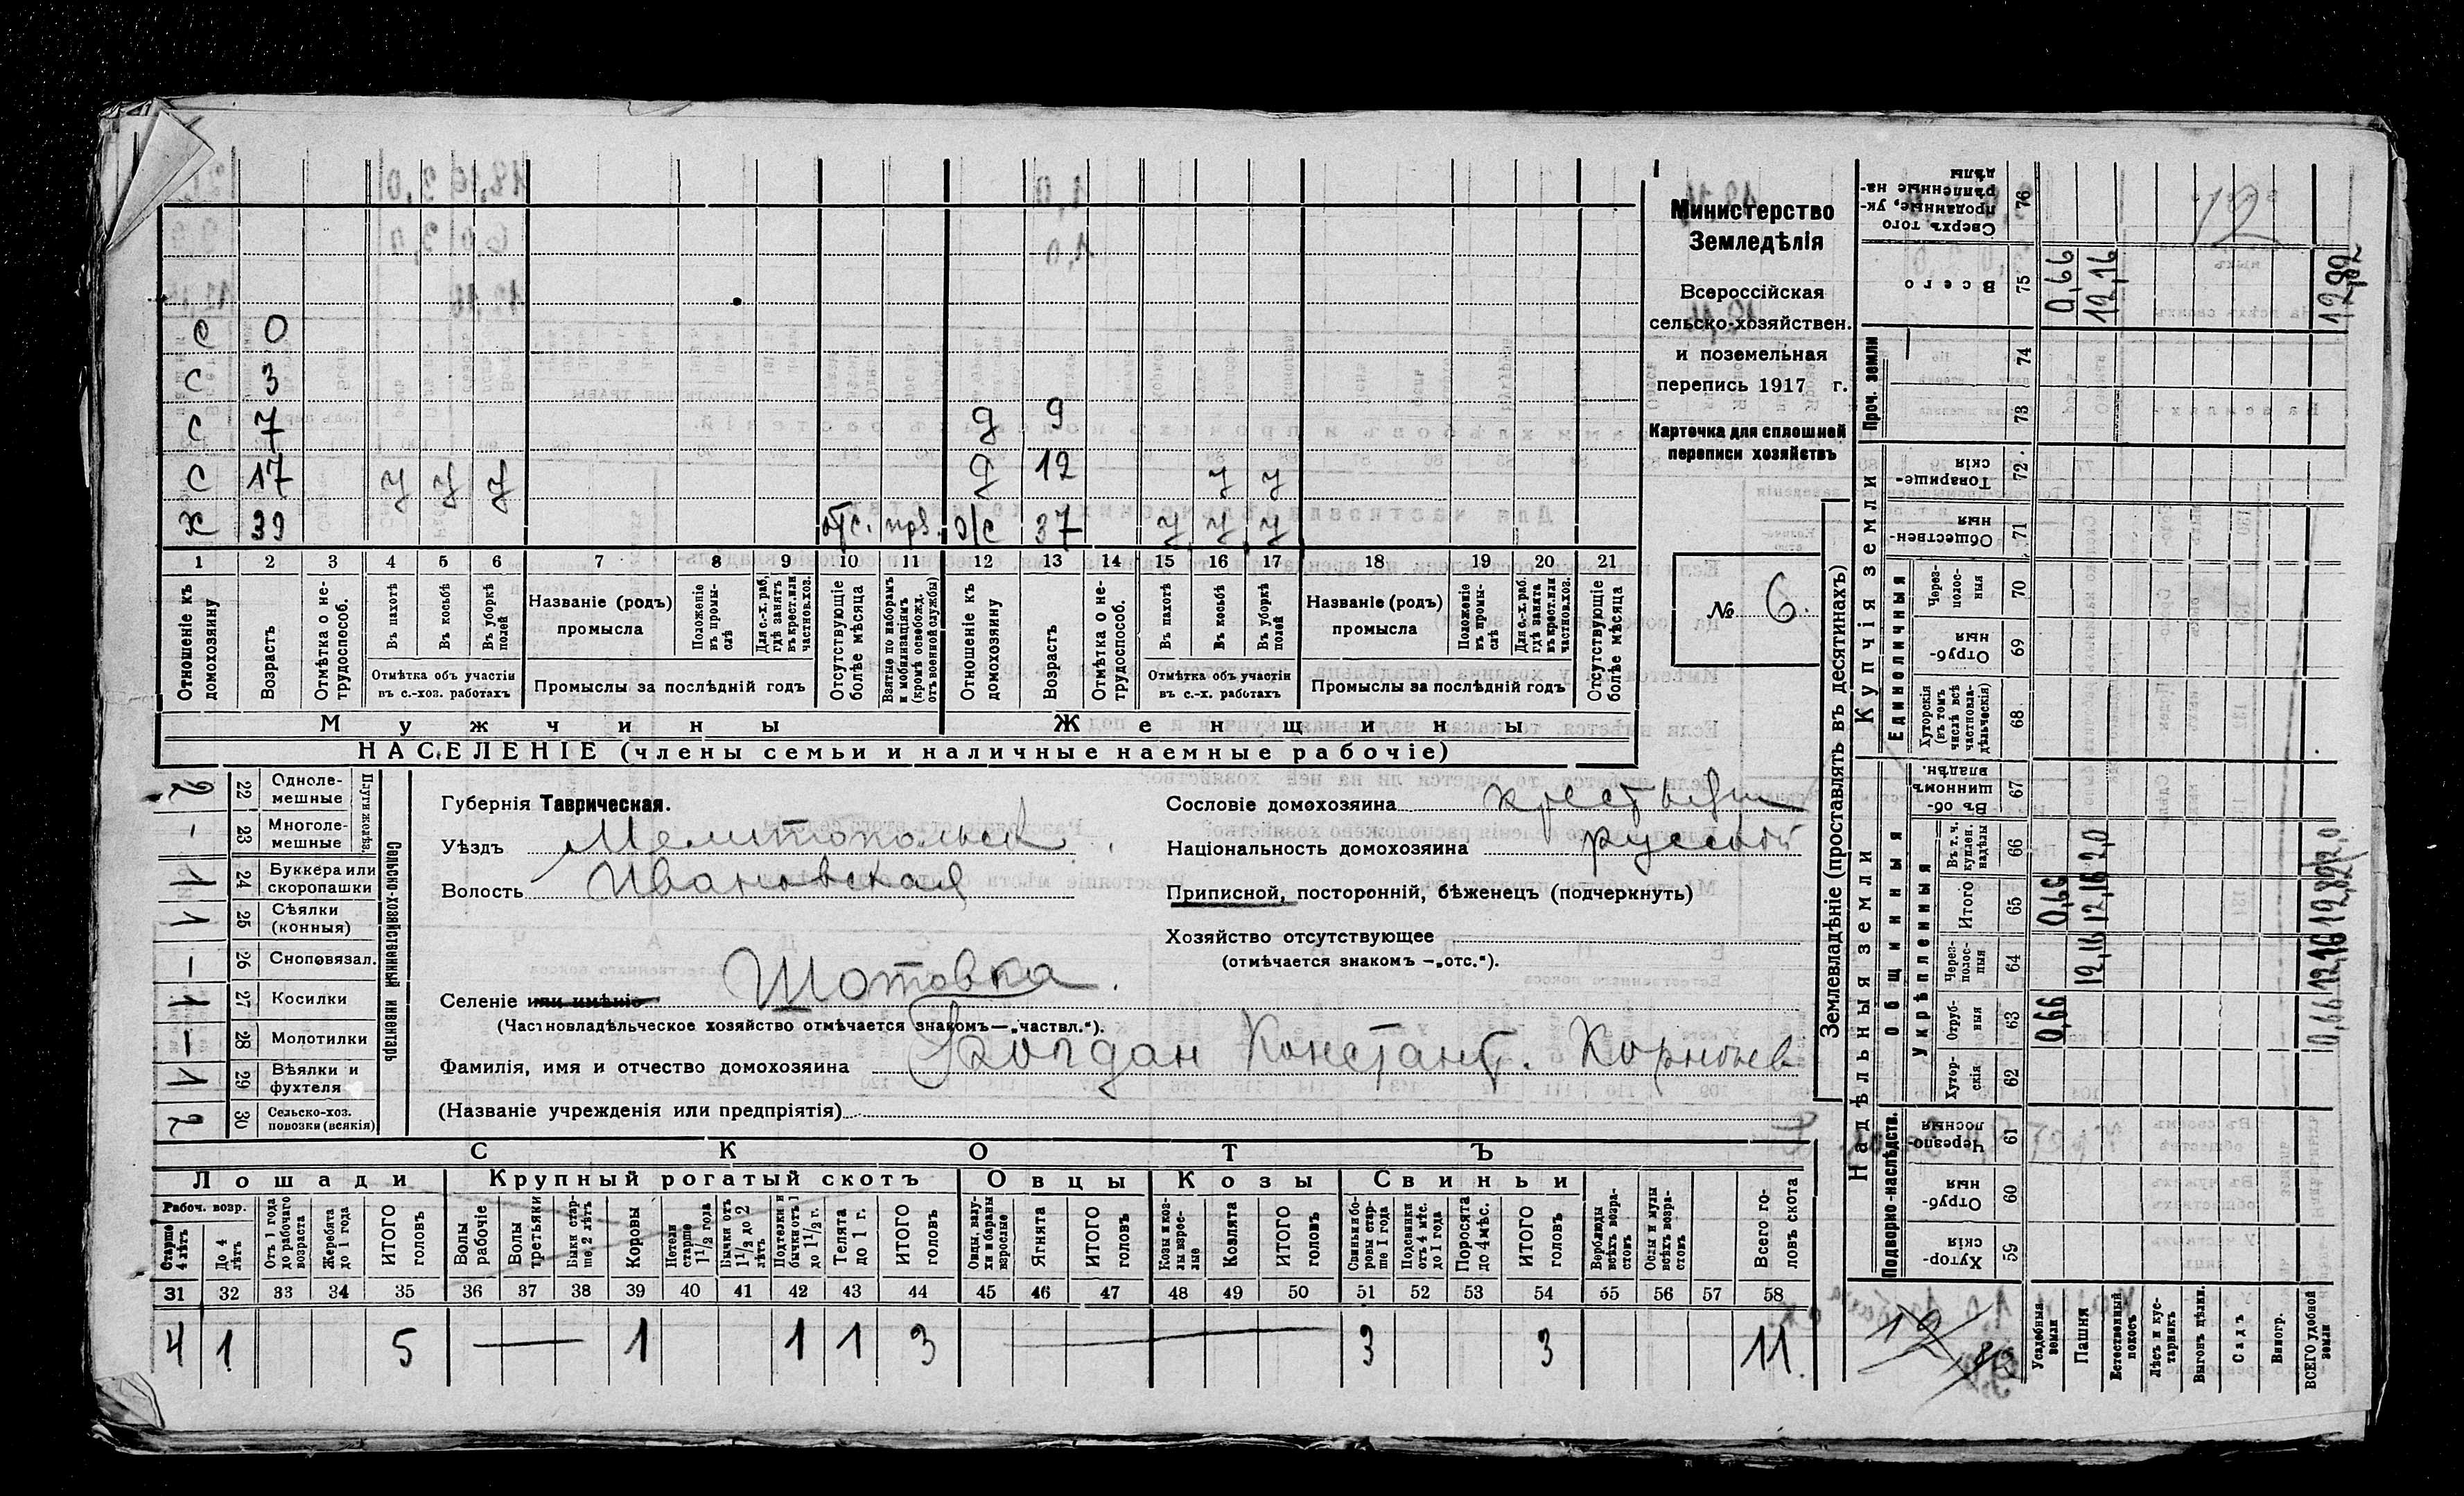 С 0
С 3
С 7 д 9
С 17 у у у д 12 у у
Х 39 отс. 37 у у у
1 2 3 4 5 6 7 8 9 10 11 12 13 14 15 16 17 18 19 20 21
Отношеніе къ домохозяину
Возрастъ
Отмѣтка о не-трудоспособ.
Въ пахотѣ
Въ косьбѣ
Въ уборкѣ полей
Отмѣтка объ участіи въ с.-хоз. работахъ
Названіе (родъ) промысла
Положеніе въ промы-слѣ
Для с.-х. раб. гдѣ занятъ въ крест. или частнов. хоз.
Промыслы за послѣдній годъ
Отсутствующіе болѣе мѣсяца
Взятые по наборамъ и мобилизаціямъ (кромѣ освобожд. отъ военной службы)
Отношеніе къ домохозяину
Возрастъ
Отмѣтка о не-трудоспособ.
Въ пахотѣ
Въ косьбѣ
Въ уборкѣ полей
Отмѣтка объ участіи въ с.-х. работахъ
Названіе (родъ) промысла
Положеніе въ промы-слѣ
Для с.-х. раб. гдѣ занята въ крест. или частнов. хоз.
Промыслы за послѣдній годъ
Отсутствующіе болѣе мѣсяца
Мужчины Женщины
НАСЕЛЕНІЕ (члены семьи и наличные наемные рабочіе)
Министерство
Земледѣлія
Всероссійская
сельско-хозяйствен.
и поземельная
перепись 1917 г.
Карточка для сплошной
переписи хозяйствъ
№ 6.
2 22 Одноле-мешные
— 23 Многоле-мешные
1 24 Буккера или скоропашки
1 25 Сѣялки (конныя)
— 26 Сноповязал.
1 27 Косилки
— 28 Молотилки
1 29 Вѣялки и фухтеля
2 30 Сельско-хоз. повозки (всякія)
Сельско-хозяйственный инвентарь
Губернія Таврическая.
Уѣздъ Мелитопольск
Волость Ивановская
Селеніе или имѣніе Шотовка.
(Частновладѣльческое хозяйство отмѣчается знакомъ—„частвл.“).
Фамилія, имя и отчество домохозяина Богдан Констант. Корнѣев
(Названіе учрежденія или предпріятія)
Сословіе домохозяина крестьян
Національность домохозяина русскій
Приписной, посторонній, бѣженецъ (подчеркнуть)
Хозяйство отсутствующее
(отмѣчается знакомъ —„отс.“).
СКОТЪ
Лошади Крупный рогатый скотъ Овцы Козы Свиньи
Рабоч. возр.
Старше 4 лѣтъ
До 4 лѣтъ
Отъ 1 года до рабочаго возраста
Жеребята до 1 года
ИТОГО головъ
Волы рабочіе
Волы третьяки
Быки стар-ше 2 лѣтъ
Коровы
Нетели старше 1 1/2 года
Бычки отъ 1 1/2 до 2 лѣтъ
Подтелки и бычки отъ 1 до 1 1/2 г.
Телята до 1 г.
ИТОГО головъ
Овцы, валу-хи и бараны взрослые
Ягнята
ИТОГО головъ
Козы и коз-лы взрос-лые
Козлята
ИТОГО головъ
Свиньи и бо-ровы стар-ше 1 года
Подсвинки отъ 4 мѣс. до 1 года
Поросята до 4 мѣс.
ИТОГО головъ
Верблюды всѣхъ возра-стовъ
Ослы и мулы всѣхъ возра-стовъ
Всего го-ловъ скота
31 32 33 34 35 36 37 38 39 40 41 42 43 44 45 46 47 48 49 50 51 52 53 54 55 56 57 58
4 1 5 — 1 1 1 3 — 3 3 11
Землевладѣніе (проставлять въ десятинахъ)
Надѣльныя земли Купчія земли Проч. земли
Подворно-наслѣдств. Общинныя Укрѣпленныя Единоличныя
Хутор-скія 59
Отруб-ныя 60
Черезпо-лосныя 61
Хутор-скія 62
Отруб-ныя 63 0,66
Черезполос-ныя 64 12,16
Итого 65 0,66 12,16
Въ т. ч. куплен. надѣлы 66 2,0
Въ об-щинномъ владѣн. 67
Хуторскія (въ томъ числѣ всѣ частновла-дѣльческія) 68
Отруб-ныя 69
Через-полос-ныя 70
Обществен-ныя 71
Товарище-скія 72
73
74
Всего 75 0,66 12,16
Сверхъ того проданные, ук-рѣпленные на-дѣлы 76
Усадебныя земли
Пашня
Естественный покосъ
Лѣсъ и кус-тарникъ
Выгонъ цѣлин.
Садъ
Виногр.
ВСЕГО удобной земли
0,66 12,16 12,82 2,0
12,82
12